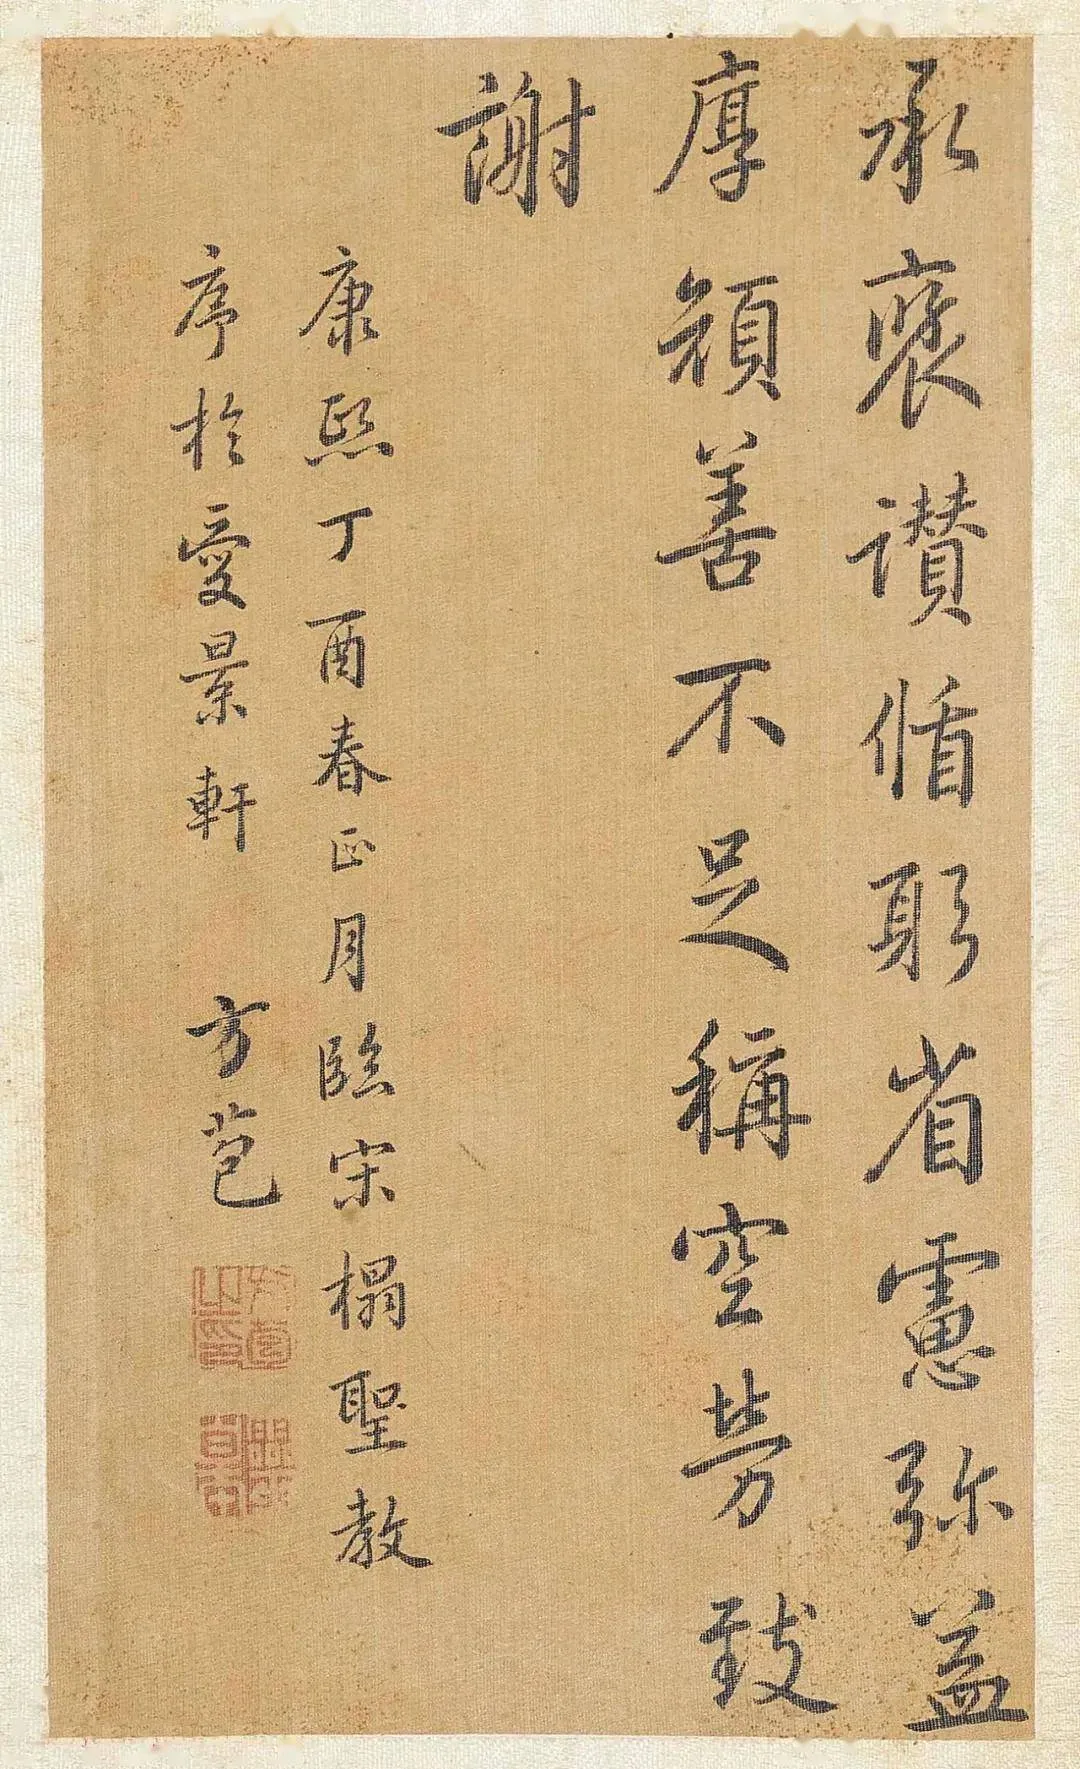 承褒讃循躬省慮弥益
厚顔善不足稱空勞致
謝
康熙丁酉春正月臨宋榻聖教
序於愛景軒 方苞